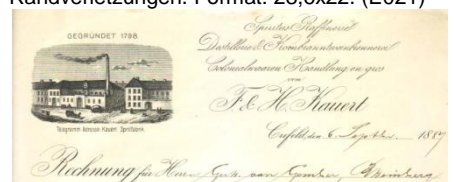 Randverletzungen. Format: 28,8x22. (E021)
GEGRÜNDET 1798.
Telegramm Adresse: Kauert Spritfabrik.
Spiritus Raffinerie
Destillerie & Kornbranntweinbrennerei
Colonialwaaren Handlung en gros
von
F. & H. Kauert
Crefeld, den 6. Septbr. 1887
Rechnung für Herrn Gebr. von